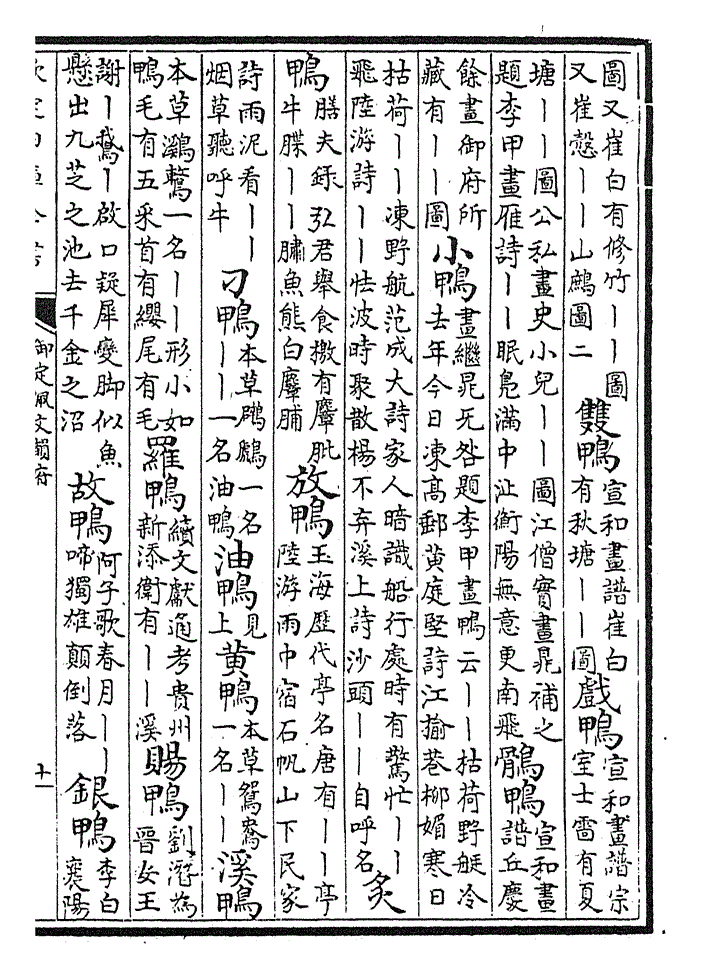 圖又崔白有修竹丨丨圖
又崔慤丨丨山鷓圖二
雙鴨
宣和畫譜崔白
有秋塘丨丨圖
戲鴨
宣和畫譜宗
室士雷有夏
塘丨丨圖公私畫史小兒丨丨圖江僧寶畫晁補之
題李甲畫雁詩丨丨眠鳧滿中沚衡陽無意更南飛
鶻鴨
宣和畫
譜丘慶
餘畫御府所
藏有丨丨圖
小鴨
畫繼晁旡咎題李甲畫鴨云丨丨枯荷野艇冷
去年今日凍高郵黄庭堅詩江揄巷柳媚寒日
枯荷丨丨凍野航范成大詩家人暗識船行處時有驚忙丨丨
飛陸游詩丨丨怯波時聚散楊不弃溪上詩沙頭丨丨自呼名
炙
鴨
膳夫錄弘君舉食檄有麞䏶
牛䐑丨丨魚熊白麞脯
放鴨
玉海歷代亭名唐有丨丨亭
陸游雨中宿石帆山下民家
詩雨泥看丨丨
烟草聽呼牛
刁鴨
本草鸊鷉一名
丨丨一名油鴨
油鴨
見
上
黄鴨
本草鴛鴦
一名丨丨
溪鴨
本草鸂鶒一名丨丨形小如
鴨毛有五采首有纓尾有毛
羅鴨
續文獻通考貴州
新添衛有丨丨溪
賜鴨
劉潛為
晉安王
謝丨鵝丨啟口疑犀變脚似魚
懸出九芝之池去千金之沼
故鴨
阿子歌春月丨丨
啼獨雄顛倒落
銀鴨
李白
襄陽
欽定四庫全書
御定佩文韻府
十一